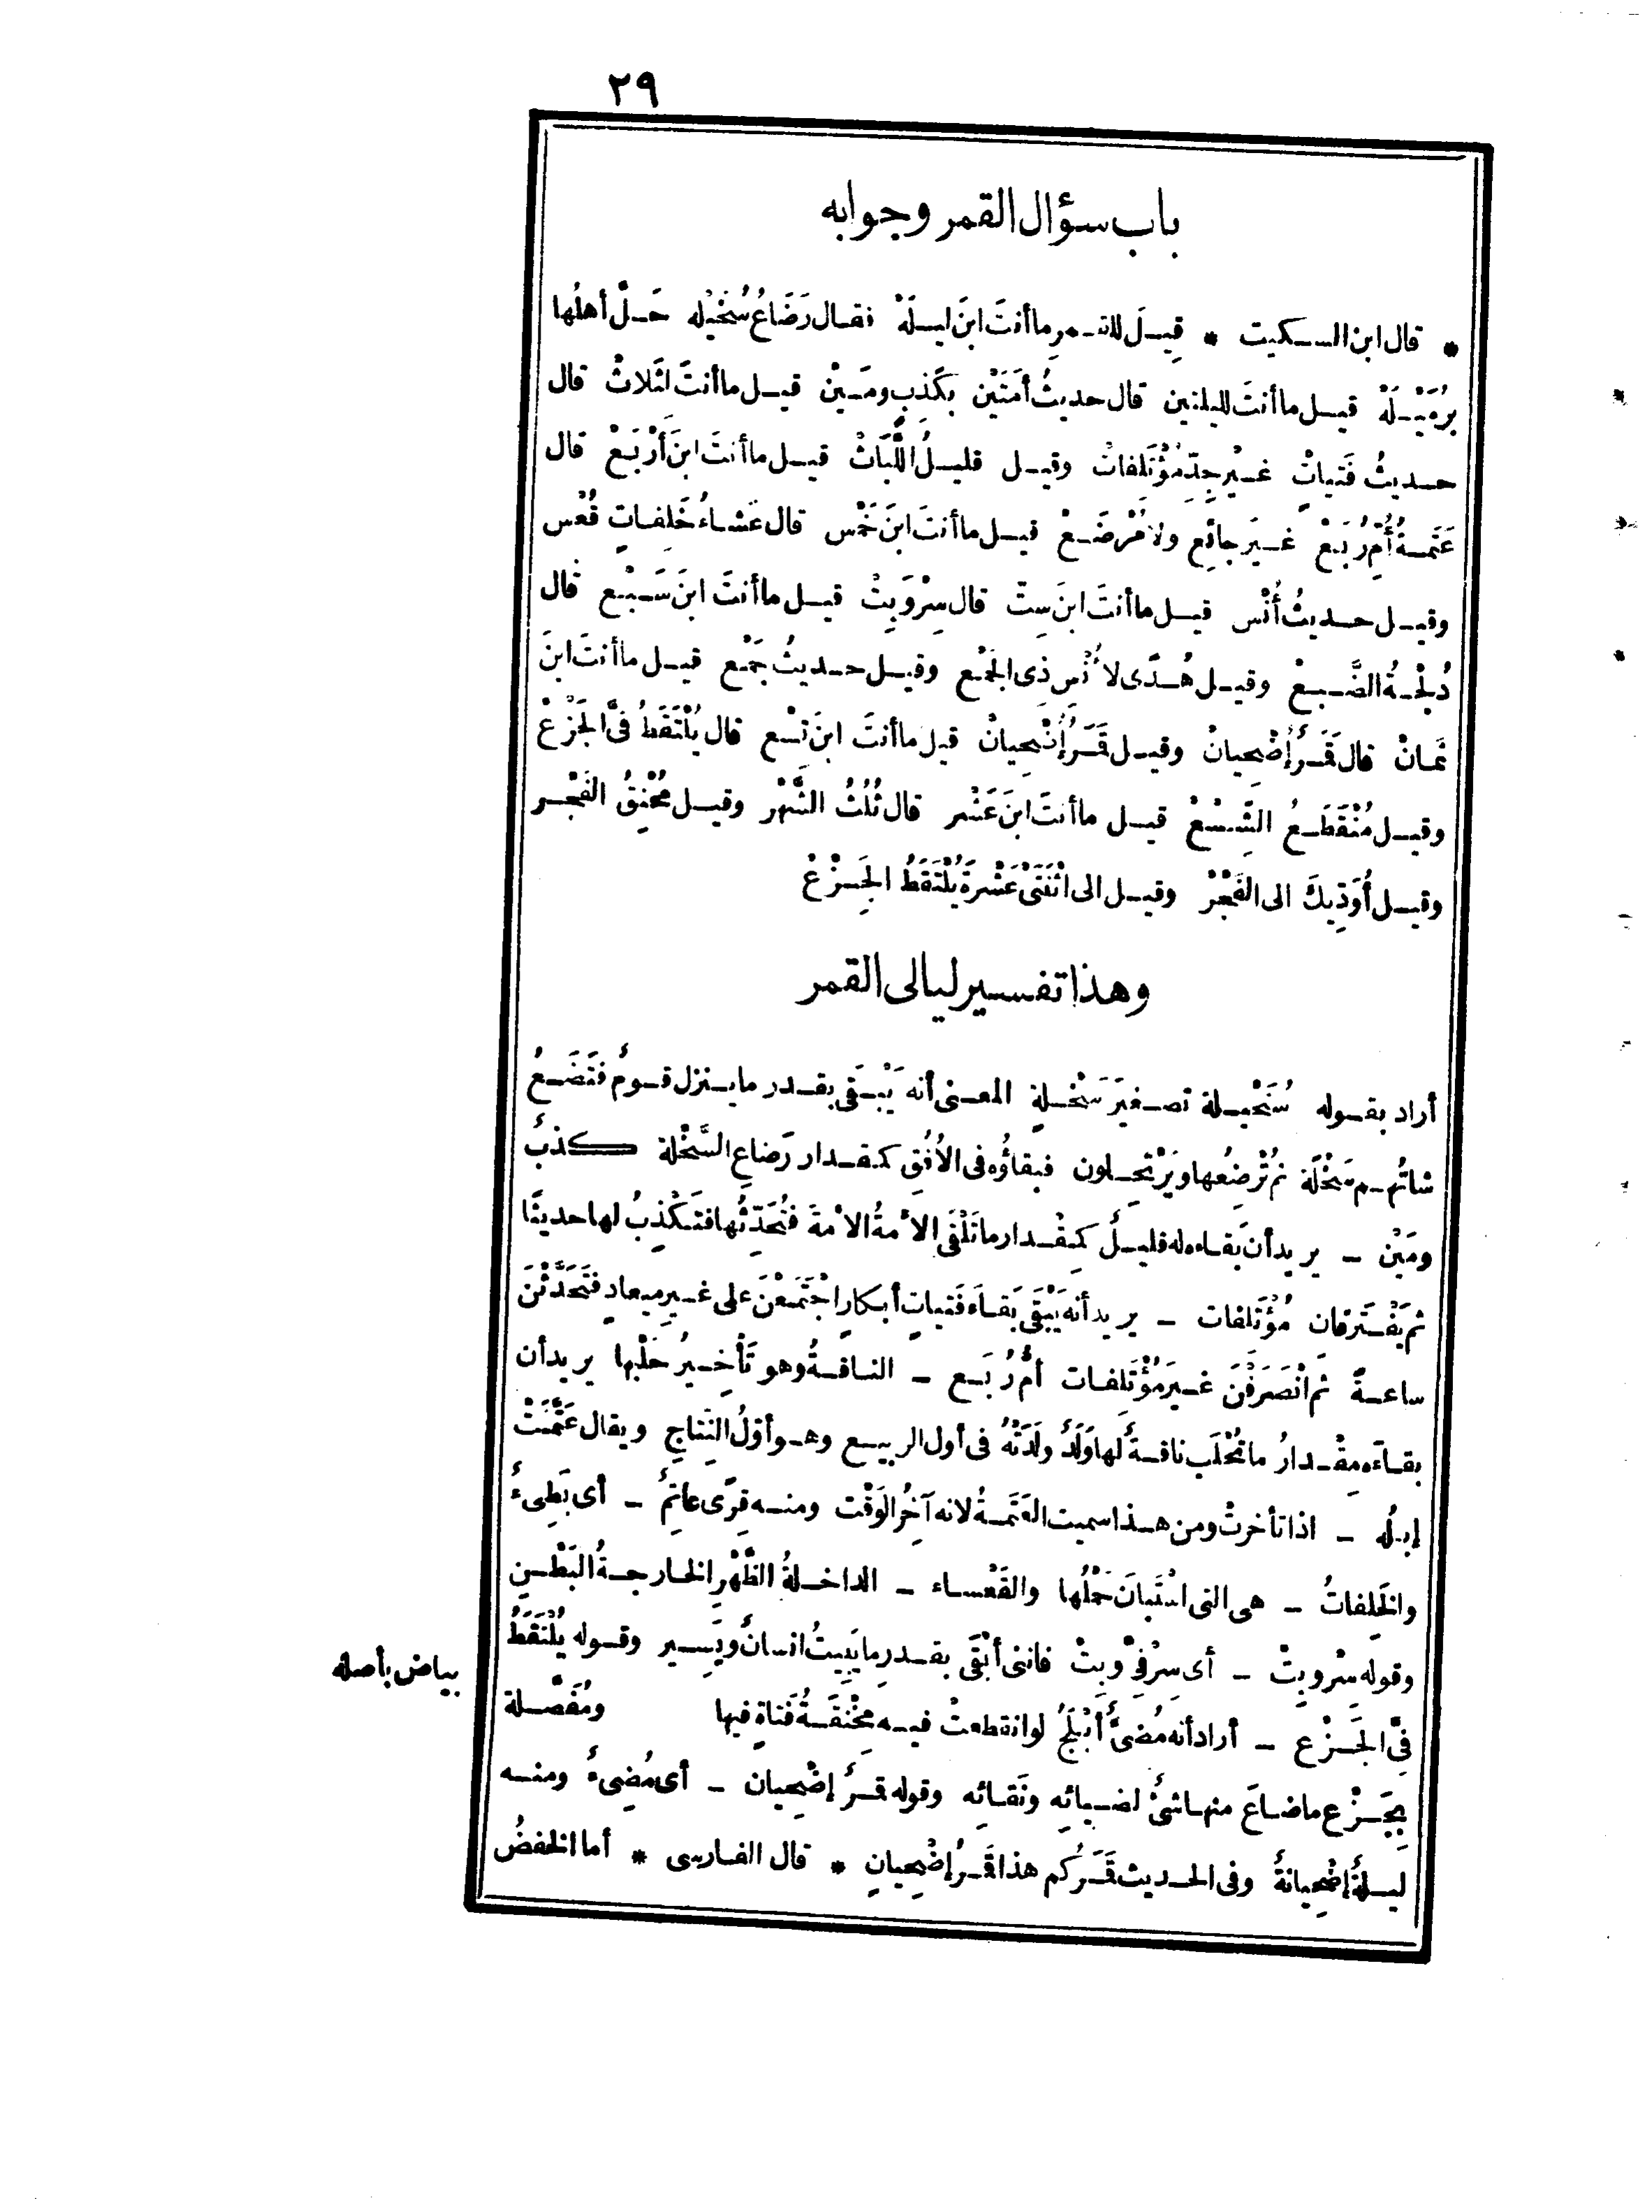 ٢٩
باب سؤال القمر وجوابه
* قال ابن السكيت * قِيلَ للقمرِ ما أنتَ ابنَ ليلَهْ فقال رَضَاعُ سُخَيْله حَلَّ أهلُها
برُمَيْلَهْ قيل ما أنتَ لليلتين قال حديثُ أَمَتَيْن بكَذِبٍ ومَيْنْ قيل ما أنتَ لثَلاثْ قال
حديثُ فَتياتْ غيْرِ جِدِّ مُؤْتَلفاتْ وقيل قليلُ اللَّبَاثْ قيل ما أنتَ ابنَ أرْبَعْ قال
عَتَمةُ أُمِّ رُبَعْ غيَر جائعٍ ولا مُرْضَعْ قيل ما أنتَ ابنَ خَمْس قال عَشاءُ خَلِفاتٍ قُعْس
وقيل حديثُ أُنْس قيل ما أنتَ ابنَ سِتّ قال سِرْ وَبِتْ قيل ما أنتَ ابنَ سَبْع قال
دُلْجةُ الضَّبعْ وقيل هُدًى لأُنْسِ ذِى الجَمْع وقيل حديثُ جَمْع قيل ما أنتَ ابنَ
ثمانْ قال قَمَرٌ إضْحِيانْ وقيل قَمَرُ إضْحِيانْ قيل ما أنتَ ابنَ تِسْع قال يُلْتَقَطُ فىَّ الجَزْعْ
وقيل مُنْقَطَعُ الشِّسْعْ قيل ما أنتَ ابنَ عَشْر قال ثُلُثُ الشَّهْر وقيل مُخْنِقُ الفَجْر
وقيل أُوَدِّيكَ الى الفَجْرْ وقيل الى اثْنَتَىْ عَشْرةَ يُلْتَقَطُ الجَزْعْ
وهذا تفسير ليالى القمر
أراد بقوله سُخَيْلة تصغيَر سَخْلةٍ المعنى أنه يَبْقَى بقدر ما ينزل قومٌ فتَضَعُ
شاتُهم سَخْلَة ثم تُرْضِعُها ويَرْتَحِلون فبقاؤُه فى الاُفُقِ كمقدار رَضاعِ السَّخْلة كذبٌ
ومَيْن - يريد أن بَقاءه قليلٌ كمِقْدار ما تَلْقَى الأَمةُ الأَمةَ فتُحَدِّثُها فتَكْذِبُ لها حديثًا
ثم يَفْتَرقان مُؤْتَلفات - يريد أنه يَبْقَى بَقاءَ فَتياتٍ أبكارٍ اجْتَمَعْنَ على غيرِ ميعادٍ فتَحَدَّثْنَ
ساعةً ثم انْصَرَفْنَ غيرَ مُؤْتَلِفات أُمُّ رُبَع - الناقةُ وهو تَأْخيرُ حَلْبِها يريد أن
بقاءَه مِقْدارُ ما تُحْلَب ناقةٌ لها وَلَدٌ ولَدَتْهُ فى أول الربيع وهو أوّلُ النِّتاجِ ويقال عَتَّمَتْ
إبلُه - اذا تأخرتْ ومن هذا سميت العَتَمةُ لانه آخِرُ الوَقْت ومنه قِرًى عاتِمٌ - أى بَطِىءُ
والخَلِفاتُ - هى التى استَبانَ حَمْلُها والقَعْساء - الداخلةُ الظَّهْرِ الخارجةُ البَطْنِ
وقوله سْر وبِتْ - أى سِرْ فِىَّ وبِتْ فاننى أبْقَى بقدرِ ما يَبِيتُ انسانٌ ويَسير وقوله يُلْتَقَطُ
فِىَّ الجَزْع - أراد أنه مُضىءٌ أبْلَجُ لو انقطعتْ فيه مِخْنَقةُ فَتاةٍ فيها ومُفَصَّلة
بِجَزْع ماضاعَ منها شئٌ لضيائِه ونَقائِه وقوله قمَرٌ إضْحِيان - أى مُضِىءٌ ومنه
ليلةٌ إضْحِيانةٌ وفى الحديث قَمَرُكم هذا قَمَرُ إضْحِيانٍ * قال الفارسى * أما الخفضُ
بياض بأصله